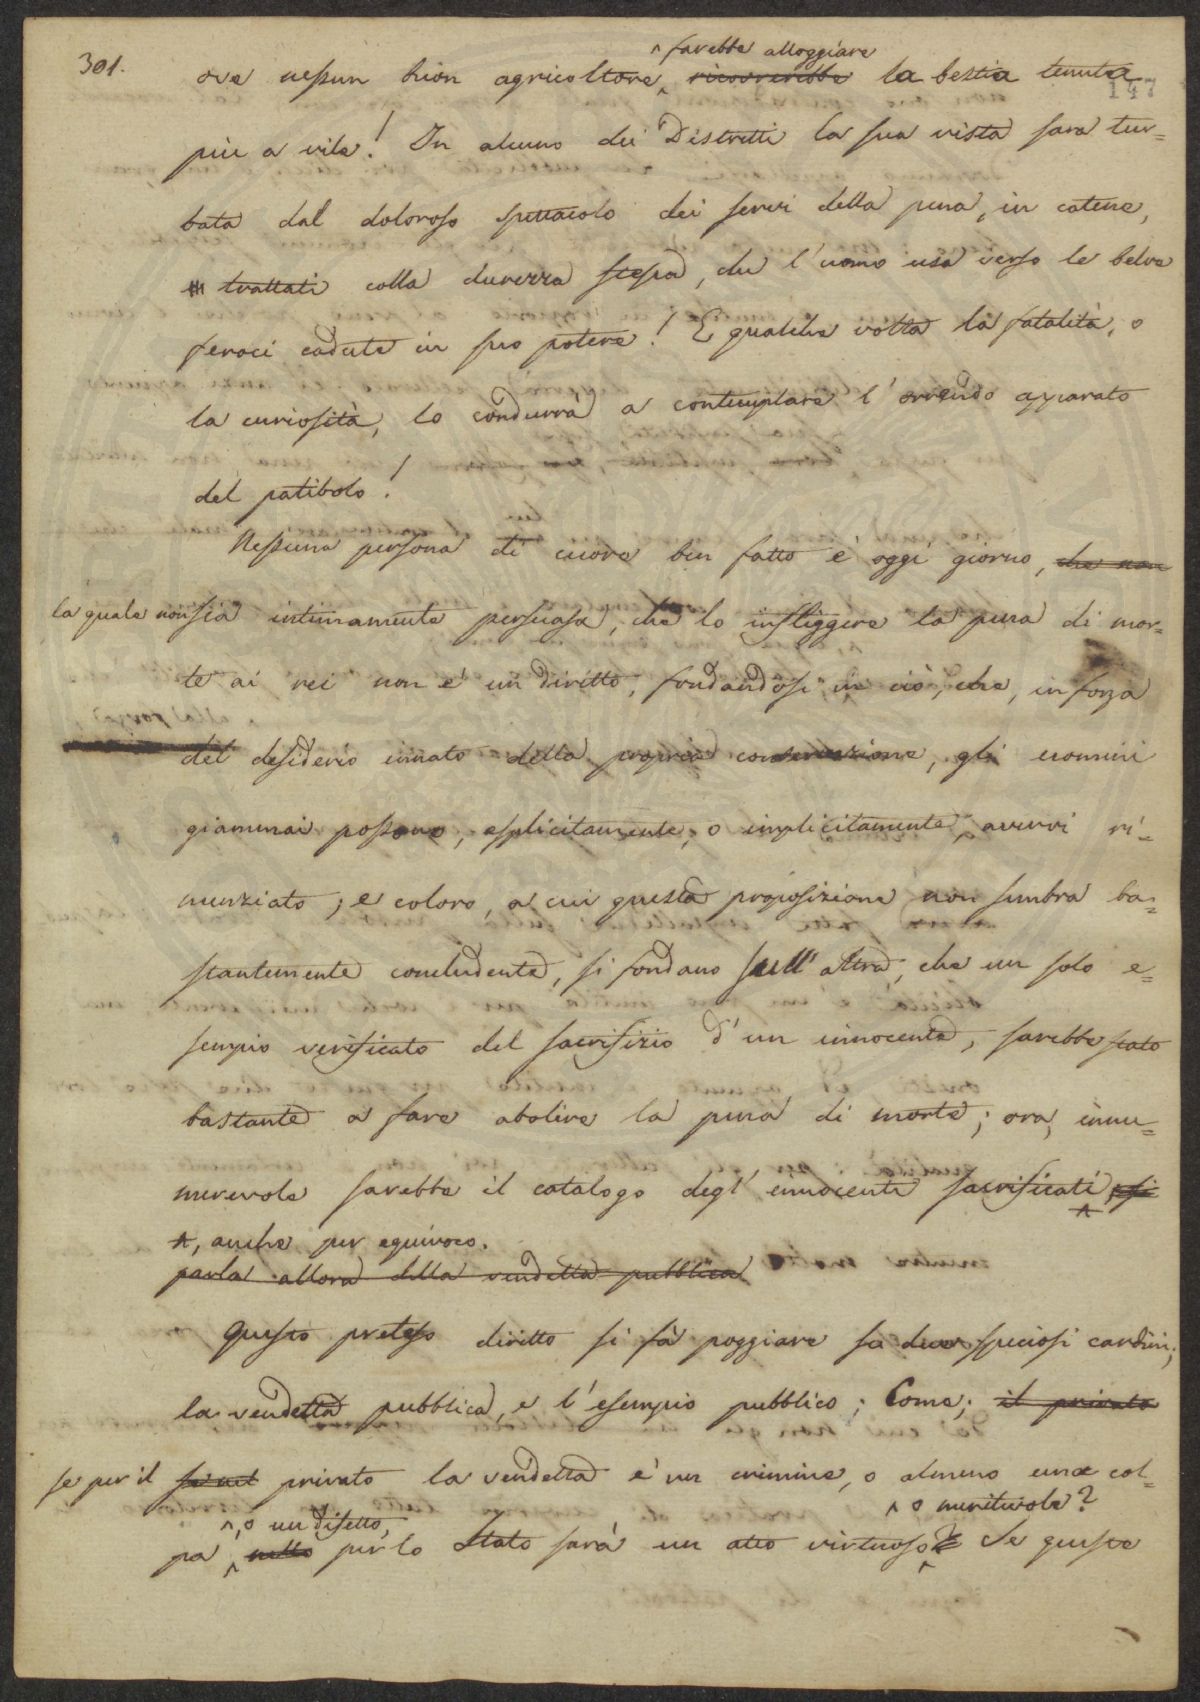 301.
^ farebbe alloggiare
ove nessun buon agricoltore ^ ricovrerebbe la bestia tenuta
147
più a vile! In alcuno dei Distretti la sua vista sarà tur=
bata dal doloroso spettacolo dei servi della pena, in catene,
trattati colla durezza stessa, che l'uomo usa verso le belve
feroci cadute in suo potere! E qualche volta la fatalità, o
la curiosità, lo condurrà a contemplare l'orrendo apparato
del patibolo!
Nessuna persona di cuore ben fatto è oggi giorno, che non
la quale non sia intimamente persuasa, che lo infliggere la pena di mor=
te ai rei non è un diritto, fondandosi in ciò, che, in forza
del desiderio innato della propria conservazione, gli uomini
giammai possono, esplicitamente, o implicitamente, avervi ri=
nunziato; e coloro, a cui questa proposizione non sembra ba=
stantemente concludente, si fondano sull'altra, che un solo e=
sempio verificato del sacrifizio d'un innocente, sarebbe stato
bastante a fare abolire la pena di morte; ora, innu=
merevole sarebbe il catalogo degl'innocenti sacrificati ^ si
^, anche per equivoco.
parla allora della vendetta pubblica
Questo preteso diritto si fà poggiare su due speciosi cardini;
la vendetta pubblica, e l'esempio pubblico; Come; il privato
se per il se nel privato la vendetta è un crimine, o almeno una col=
^, o un difetto,
^ o meritevole?
pa ^ nello per lo Stato sarà un atto virtuoso ^ Se queste